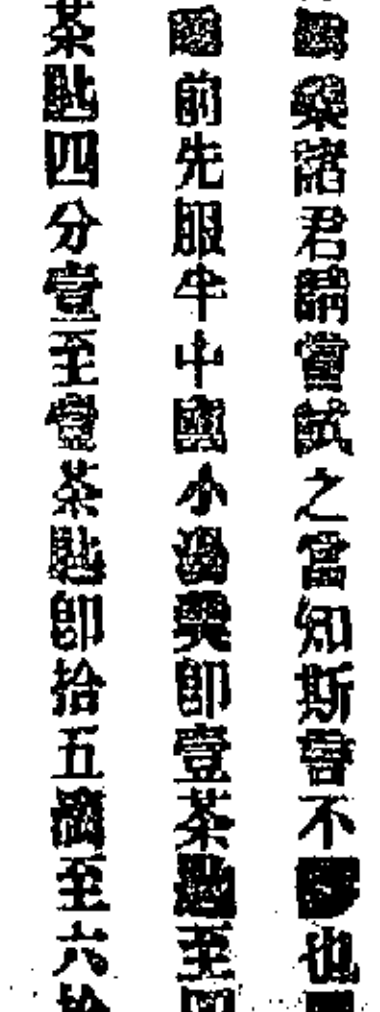 藥諸君請嘗試之當知斯言不謬也
前先服半中國小湯羮即壹茶匙至四
茶匙四分壹至壹茶匙即拾五滴至六拾